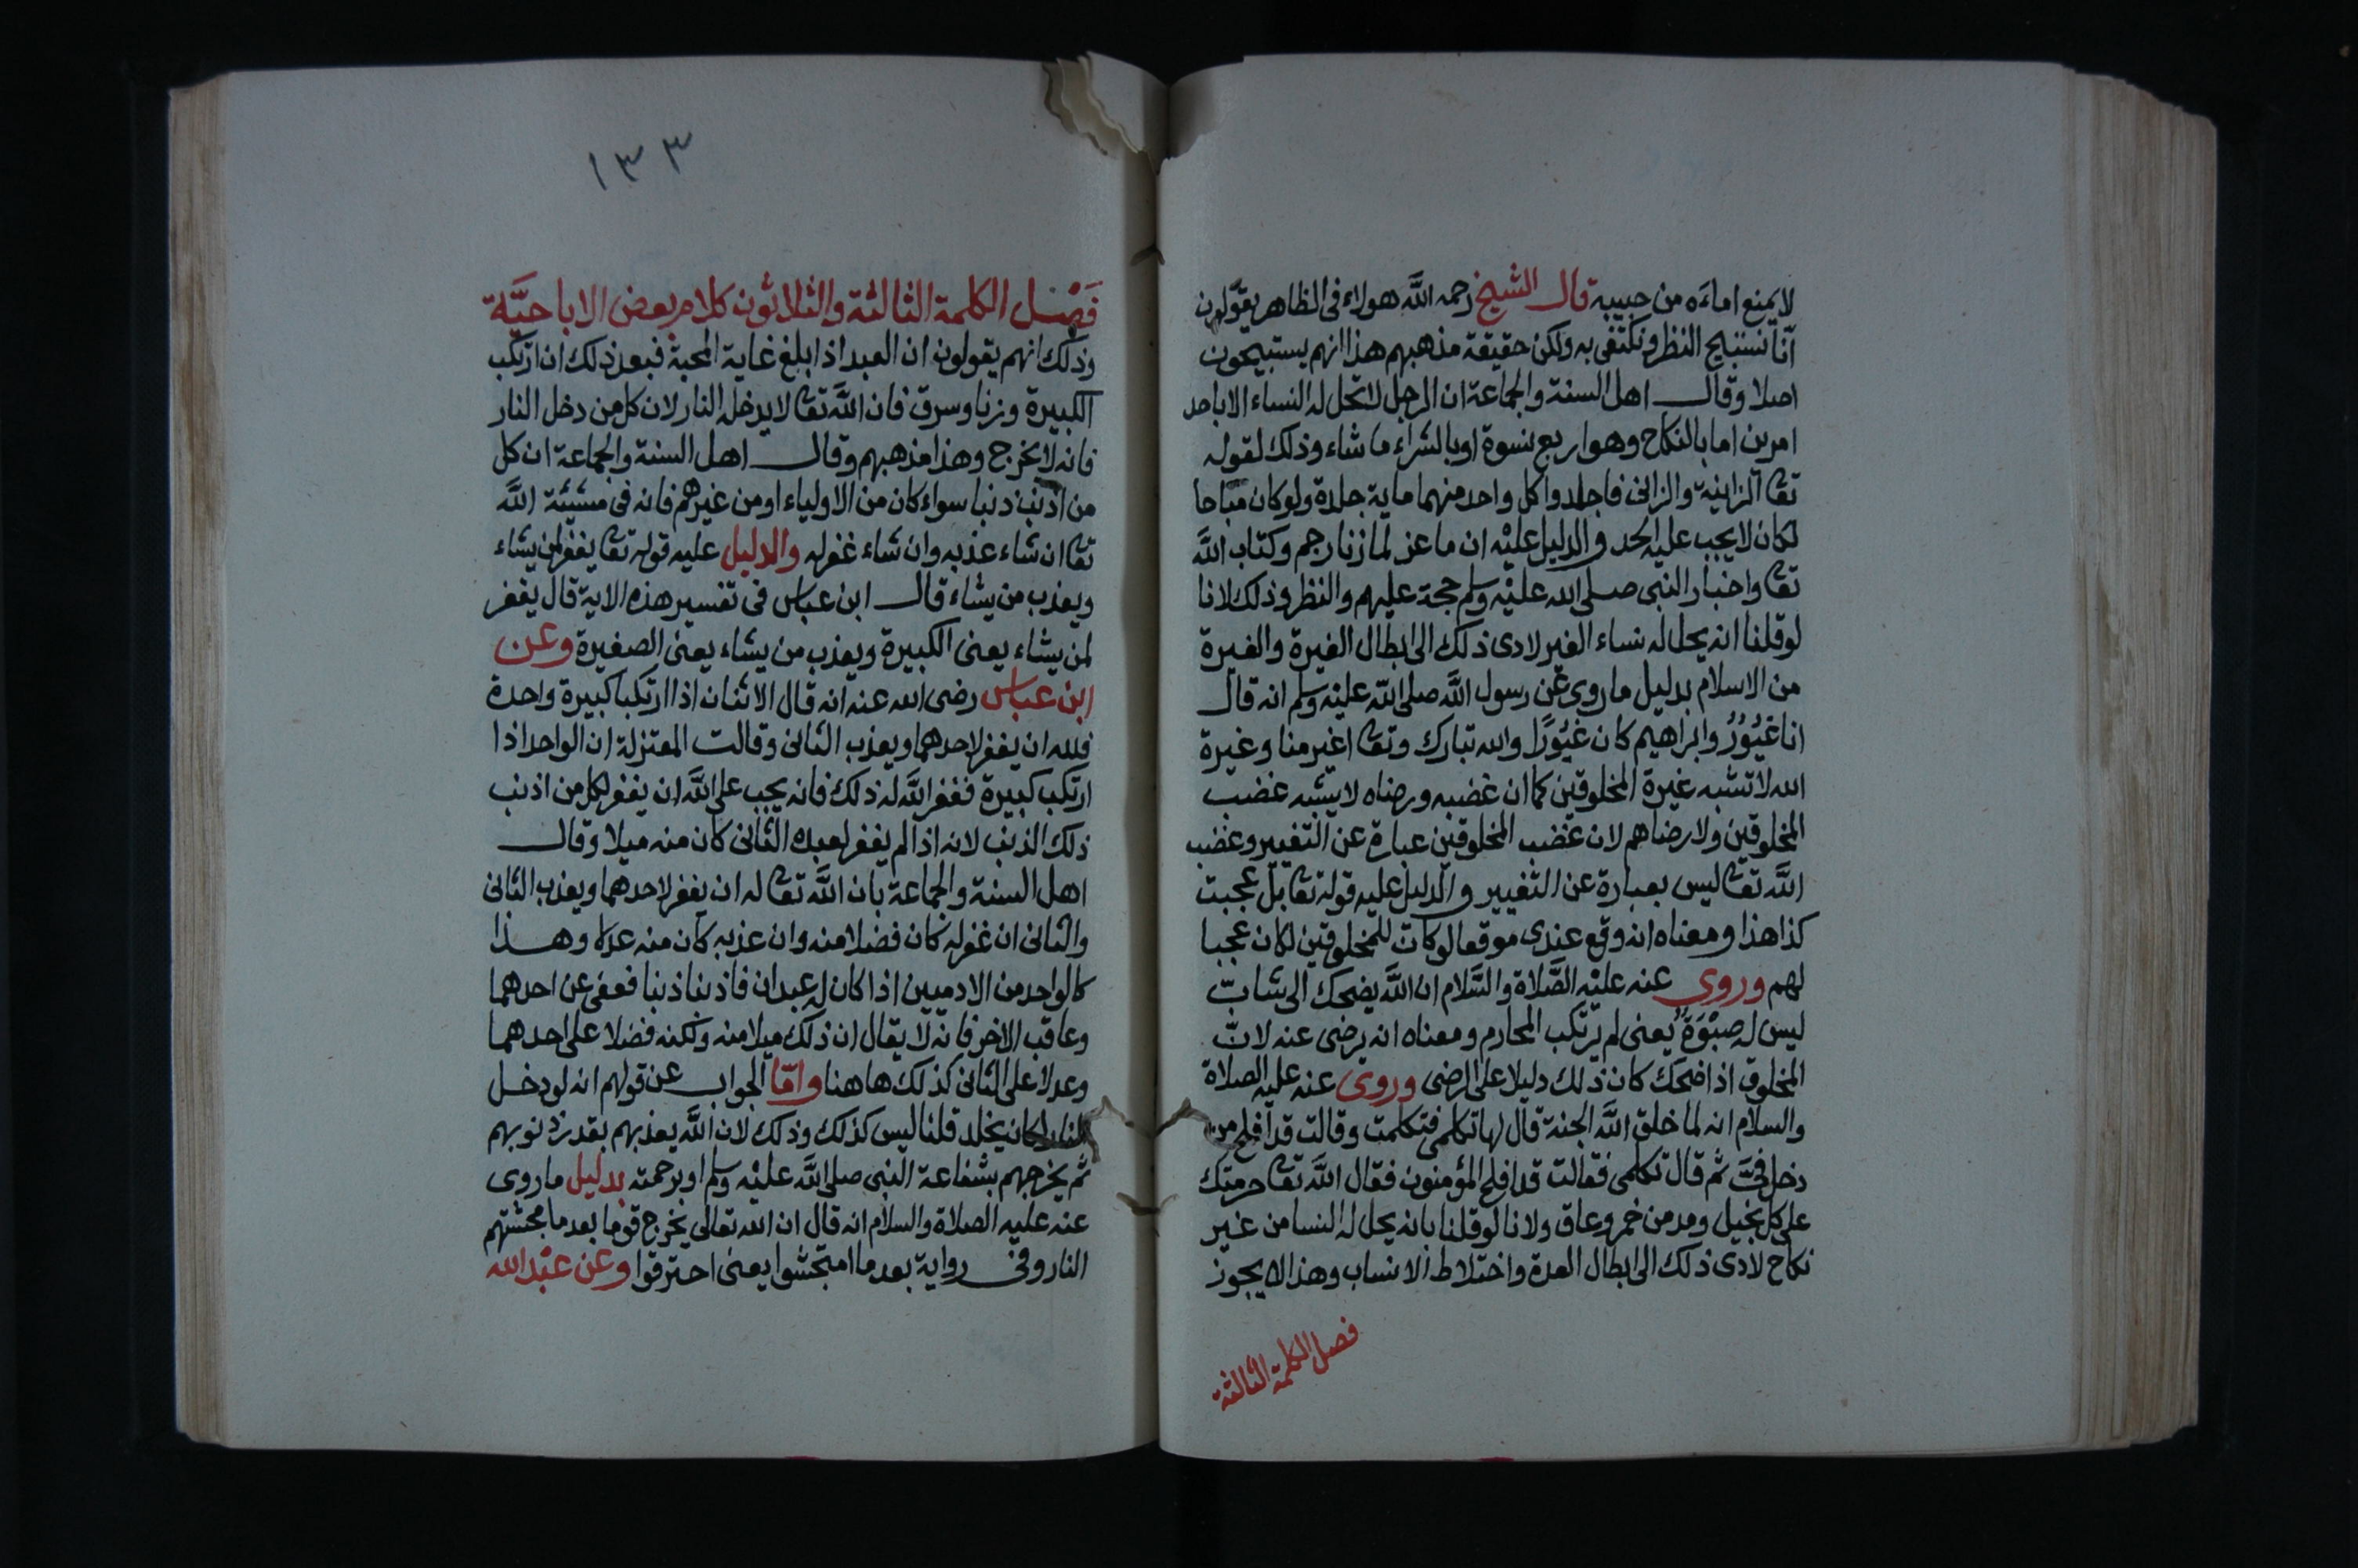 لا يمنع اماءه من حبيبه قال الشيخ رحمه الله هولاء في الظاهر يقولون
انا نستبيح النظر ونكتفى به ولكن حقيقة مذهبهم هذا انهم يستبيحون
اصلا وقال اهل السنة والجماعة ان الرجل لا تحل له النساء الا باحد
امرين اما بالنكاح وهو اربع نسوة او بالشراء ما شاء وذلك لقوله
تعا الزانية والزانى فاجلدوا كل واحد منهما ماية جلدة ولو كان مباحا
لكان لا يجب عليه الحد والدليل عليه ان ماعز لما زنا رجم وكتاب الله
تعا واخبار النبى صلى الله عليه وسلم حجة عليهم والنظر وذلك لانا
لو قلنا انه يحل له نساء الغير لادى ذلك الى ابطال الغيرة والغيرة
من الاسلام بدليل ما روى عن رسول الله صلى الله عليه وسلم انه قال
انا غيور وابراهيم كان غيورا والله تبارك وتعا اغير منا وغيرة
الله لا تشبه غيرة المخلوقين كما ان غضبه ورضاه لا يشبه غضب
المخلوقين ولا رضاهم لان غضب المخلوقين عبارة عن التغيير وغضب
الله تعا ليس بعبارة عن التغيير والدليل عليه قوله تعا بل عجبت
كذا هذا ومعناه انه وقع عندى موقعا لو كان للمخلوقين لكان عجبا
لهم وروى عنه عليه الصلاة والسلام ان الله يضحك الى شاب
ليس له صبوة يعنى لم يرتكب المحارم ومعناه انه يرضى عنه لان
المخلوق اذا ضحك كان ذلك دليلا على الرضى وروى عنه عليه الصلاة
والسلام انه لما خلق الله الجنة قال لها تكلمى فتكلمت وقالت قد افلح من
دخل فىّ ثم قال تكلمى فقالت قد افلح المؤمنون فقال الله تعا حرمتك
على كل بخيل ومدمن خمر وعاق ولانا لو قلنا بانه يحل له النسا من غير
نكاح لادى ذلك الى ابطال العدة واختلاط الانساب وهذا لا يجوز
فصل الكلمة الثالثة
١٣٣
فَصْل الكلمة الثالثة والثلاثون كلام بعض الاباحيَّة
وذلك انهم يقولون ان العبد اذا بلغ غاية المحبة فبعد ذلك ان ارتكب
الكبيرة وزنا وسرق فان الله تعا لا يدخله النار لان كل من دخل النار
فانه لا يخرج وهذا مذهبهم وقال اهل السنة والجماعة ان كل
من اذنب ذنبا سواء كان من الاولياء او من غيرهم فانه فى مشيئة الله
تعا ان شاء عذبه وان شاء غفر له والدليل عليه قوله تعا يغفر لمن يشاء
ويعذب من يشاء قال ابن عباس فى تفسير هذه الاية قال يغفر
لمن يشاء يعنى الكبيرة ويعذب من يشاء يعنى الصغيرة وعن
ابن عباس رضى الله عنه انه قال الاثنان اذا ارتكبا كبيرة واحدة
فلله ان يغفر لاحدهما ويعذب الثانى وقالت المعتزلة ان الواحد اذا
ارتكب كبيرة فغفر الله له ذلك فانه يجب على الله ان يغفر لكل من اذنب
ذلك الذنب لانه اذا لم يغفر لعبده الثانى كان منه ميلا وقال
اهل السنة والجماعة بان الله تعا له ان يغفر لاحدهما ويعذب الثانى
والثانى ان غفر له كان فضلا منه وان عذبه كان منه عدلا وهذا
كالواحد من الادميين اذا كان له عبدان فاذنبا ذنبا فعفى عن احدهما
وعاقب الاخر فانه لا يقال ان ذلك ميلا منه ولكنه فضلا على احدهما
وعدلا على الثانى كذلك هاهنا وامّا الجواب عن قولهم انه لو دخل
النار لكان يخلد قلنا ليس كذلك وذلك لان الله يعذبهم بقدر ذنوبهم
ثم يخرجهم بشفاعة النبى صلى الله عليه وسلم او برحمته بدليل ما روى
عنه عليه الصلاة والسلام انه قال ان الله تعالى يخرج قوما بعد ما محشتهم
النار وفى رواية بعد ما امتحشوا يعنى احترقوا وعن عبْد الله